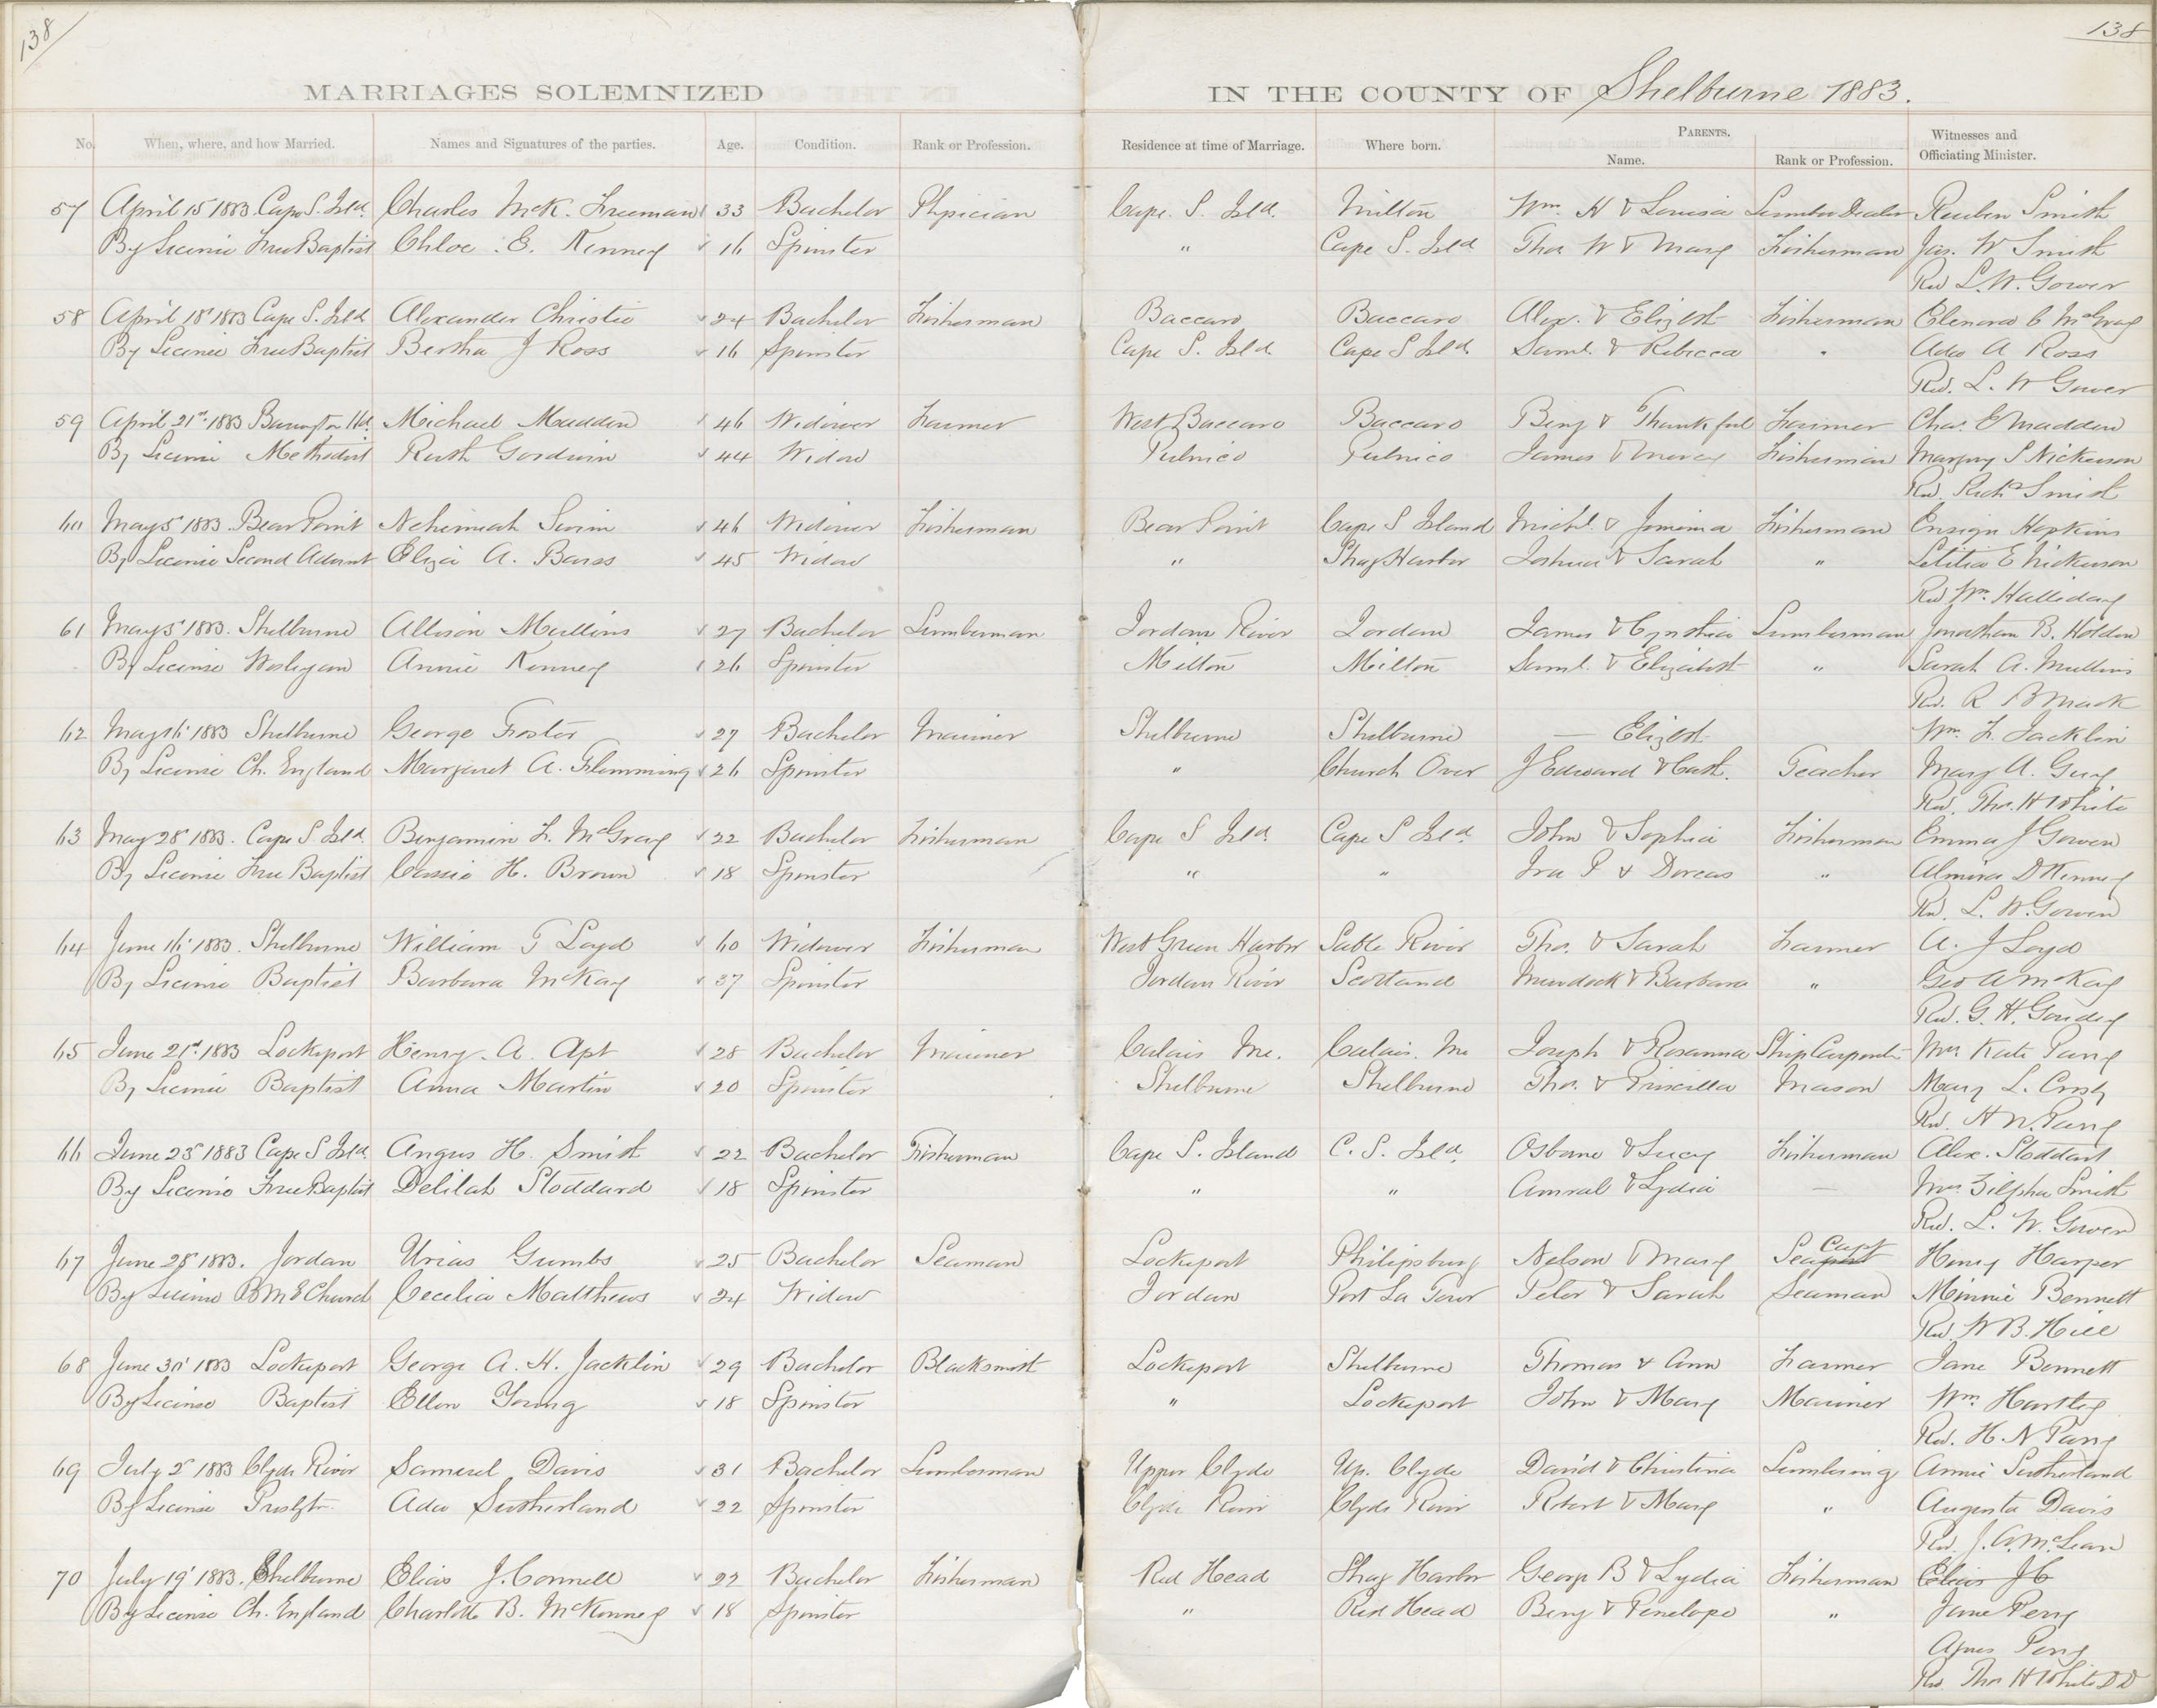 138
138
MARRIAGES SOLEMNIZED IN THE COUNTY OF Shelburne 1883.
No. When, where, and how Married. Names and Signatures of the parties. Age. Condition. Rank or Profession. Residence at time of Marriage. Where born. PARENTS. Name. Rank or Profession. Witnesses and Officiating Minister.
57 April 15 1883. Cape S. Isld. Charles McK. Freeman 33 Bachelor Physician Cape. S. Isld. Milton Wm. H & Louisa Lumber Dealer Reuben Smith
By License Free Baptist Chloe E. Kenney 16 Spinster " Cape S. Isld Thos W & Mary Fisherman Jas. W Smith
Rev L. W. Gowen
58 April 18 1883 Cape S. Isld Alexander Christie 24 Bachelor Fisherman Baccaro Baccaro Alex. & Elizbth Fisherman C McGray
By License Free Baptist Bertha J Ross 16 Spinster Cape S. Isld. Cape S Isld. Saml. & Rebecca " Ada A Ross
Rev. L. W Gowen
59 April 21st 1883 Barrington Hd. Michael Madden 46 Widower Farmer West Baccaro Baccaro Benj & Thankful Farmer Chas. E Madden
By License Methodist Ruth Goodwin 44 Widow Pubnico Pubnico James & Mercy Fisherman S Nickerson
Rev. Richd Smith
60 May 5 1883. Bear Point Nehemiah Swim 46 Widower Fisherman Bear Point Cape S Island Michl. & Jemima Fisherman Ensign Hopkins
By License Second Advent Eliza A. Barss 45 Widow " Shag Harbor Joshua & Sarah " Letitia E Nickerson
Rev Wm. Halliday
61 May 5 1883. Shelburne Allison Mullins 27 Bachelor Lumberman Jordan River Jordan James & Cynthia Lumberman Jonathan B. Holden
By License Wesleyan Annie Kenney 26 Spinster Milton Milton Saml. & Elizabeth " Sarah A. Mullins
Rev. R B Mack
62 May 16 1883 Shelburne George Foster 27 Bachelor Mariner Shelburne Shelburne — Elizbth Wm. F. Jacklin
By License Ch. England Margaret A. Flemming 26 Spinster " Church Over J Edward & Cath. Teacher Mary A. Guy
Rev. Thos. H White
63 May 28 1883. Cape S Isld. Benjamin F. McGray 22 Bachelor Fisherman Cape S Isld. Cape S Isld. John & Sophia Fisherman Emma J Gowen
By License Free Baptist Cassie H. Brown 18 Spinster " " Ira P & Dorcas " Almira D Kenney
Rev. L. W. Gowen
64 June 16 1883. Shelburne William T Loyd 60 Widower Fisherman West Green Harbor Sable River Thos. & Sarah Farmer A. J Loyd
By License Baptist Barbara McKay 37 Spinster Jordan River Scotland Murdock & Barbara " Geo A McKay
Rev. G. H. Goudey
65 June 21st 1883 Lockeport Henry. A. Apt 28 Bachelor Mariner Calais Me. Calais. Me Joseph & Rosanna Ship Carpenter Mrs. Kate Parry
By License Baptist Anna Martin 20 Spinster Shelburne Shelburne Thos. & Priscilla Mason Mary L. Crosby
Rev. H N. Parry
66 June 23 1883 Cape S Isld. Angus H. Smith 22 Bachelor Fisherman Cape S. Island C. S. Isld. Osborne & Lucy Fisherman Alex. Stoddart
By License Free Baptist Delilah Stoddard 18 Spinster " " Amral & Lydia — Mrs Zilpha Smith
Rev. L. W. Gowen
67 June 28 1883. Jordan Urias Gumbs 25 Bachelor Seaman Lockeport Philipsburg Nelson & Mary Sea Capt Henry Harper
By License B M E Church Cecelia Matthews 24 Widow Jordan Port La Tour Peter & Sarah Seaman Minnie Bennett
Rev. W B. Hill
68 June 30 1883 Lockeport George A. H. Jacklin 29 Bachelor Blacksmith Lockeport Shelburne Thomas & Ann Farmer Jane Bennett
By License Baptist Ellen Young 18 Spinster " Lockeport John & Mary Mariner Wm Hartley
Rev. H. N Parry
69 July 2 1883 Clyde River Samuel Davis 31 Bachelor Lumberman Upper Clyde Up. Clyde David & Christina Lumbering Annie Sutherland
By License Presbytr. Ada Sutherland 22 Spinster Clyde River Clyde River Robert & Mary " Augusta Davis
Rev. J. A. McLean
70 July 19 1883. Shelburne Elias J. Connell 22 Bachelor Fisherman Red Head Shag Harbor George B & Lydia Fisherman Elias J C
By License Ch. England Charlotte B. McKenney 18 Spinster " Red Head Benj & Penelope " Jane Perry
Agnes Perry
Rev Thos H White DD